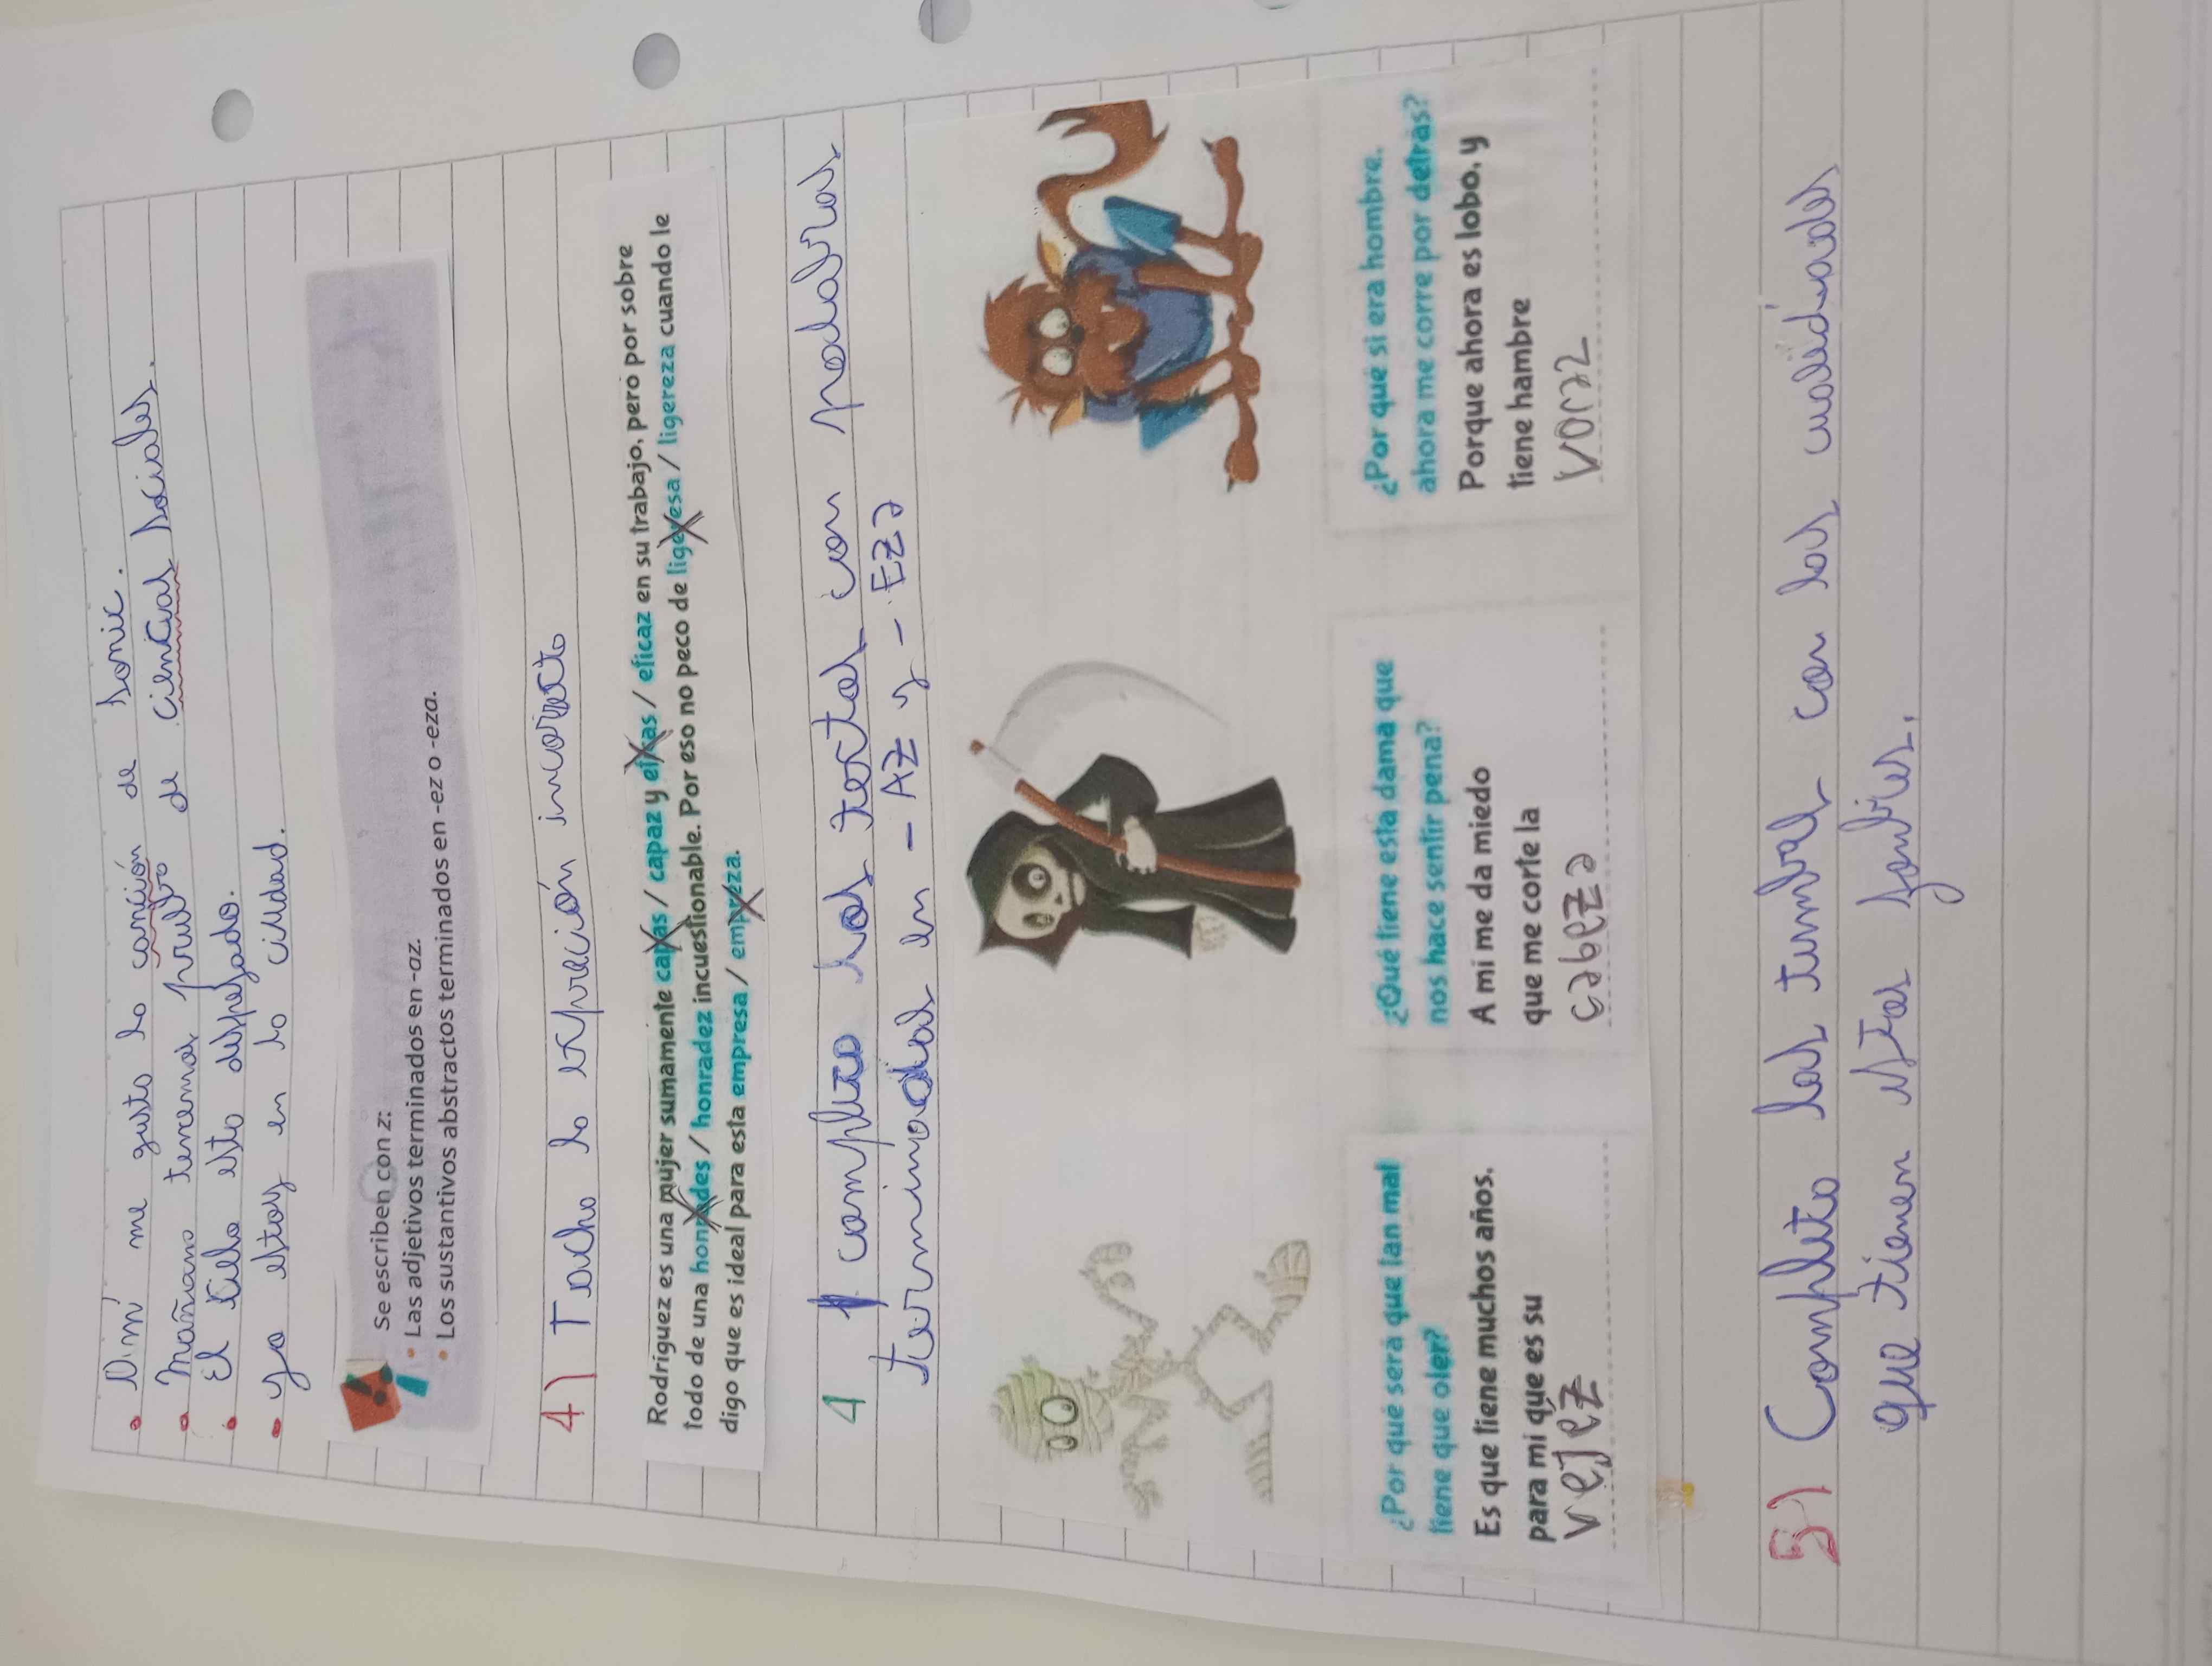 • A mi me gusta la canción de Sonic.
• Mañana tenemos prueba de ciencias sociales.
• El cielo esta despejado.
• yo estoy en la ciudad.
Se escriben con z:
• Las adjetivos terminados en -az.
• Los sustantivos abstractos terminados en -ez o -eza.
4) Tacho la expreción incorrecta
Rodríguez es una mujer sumamente capas / capaz y eficas / eficaz en su trabajo, pero por sobre
todo de una honrades / honradez incuestionable. Por eso no peco de ligeresa / ligereza cuando le
digo que es ideal para esta empresa / empreza.
4 completo los textos con palabras
terminadas en - AZ y - EZa
¿Por qué será que tan mal
tiene que oler?
Es que tiene muchos años,
para mí que es su
vejez
¿Qué tiene esta dama que
nos hace sentir pena?
A mí me da miedo
que me corte la
cabeza
¿Por qué si era hombre,
ahora me corre por detrás?
Porque ahora es lobo, y
tiene hambre
voraz
5) Completo las tumbas con las cualidades
que tienen estos seres.